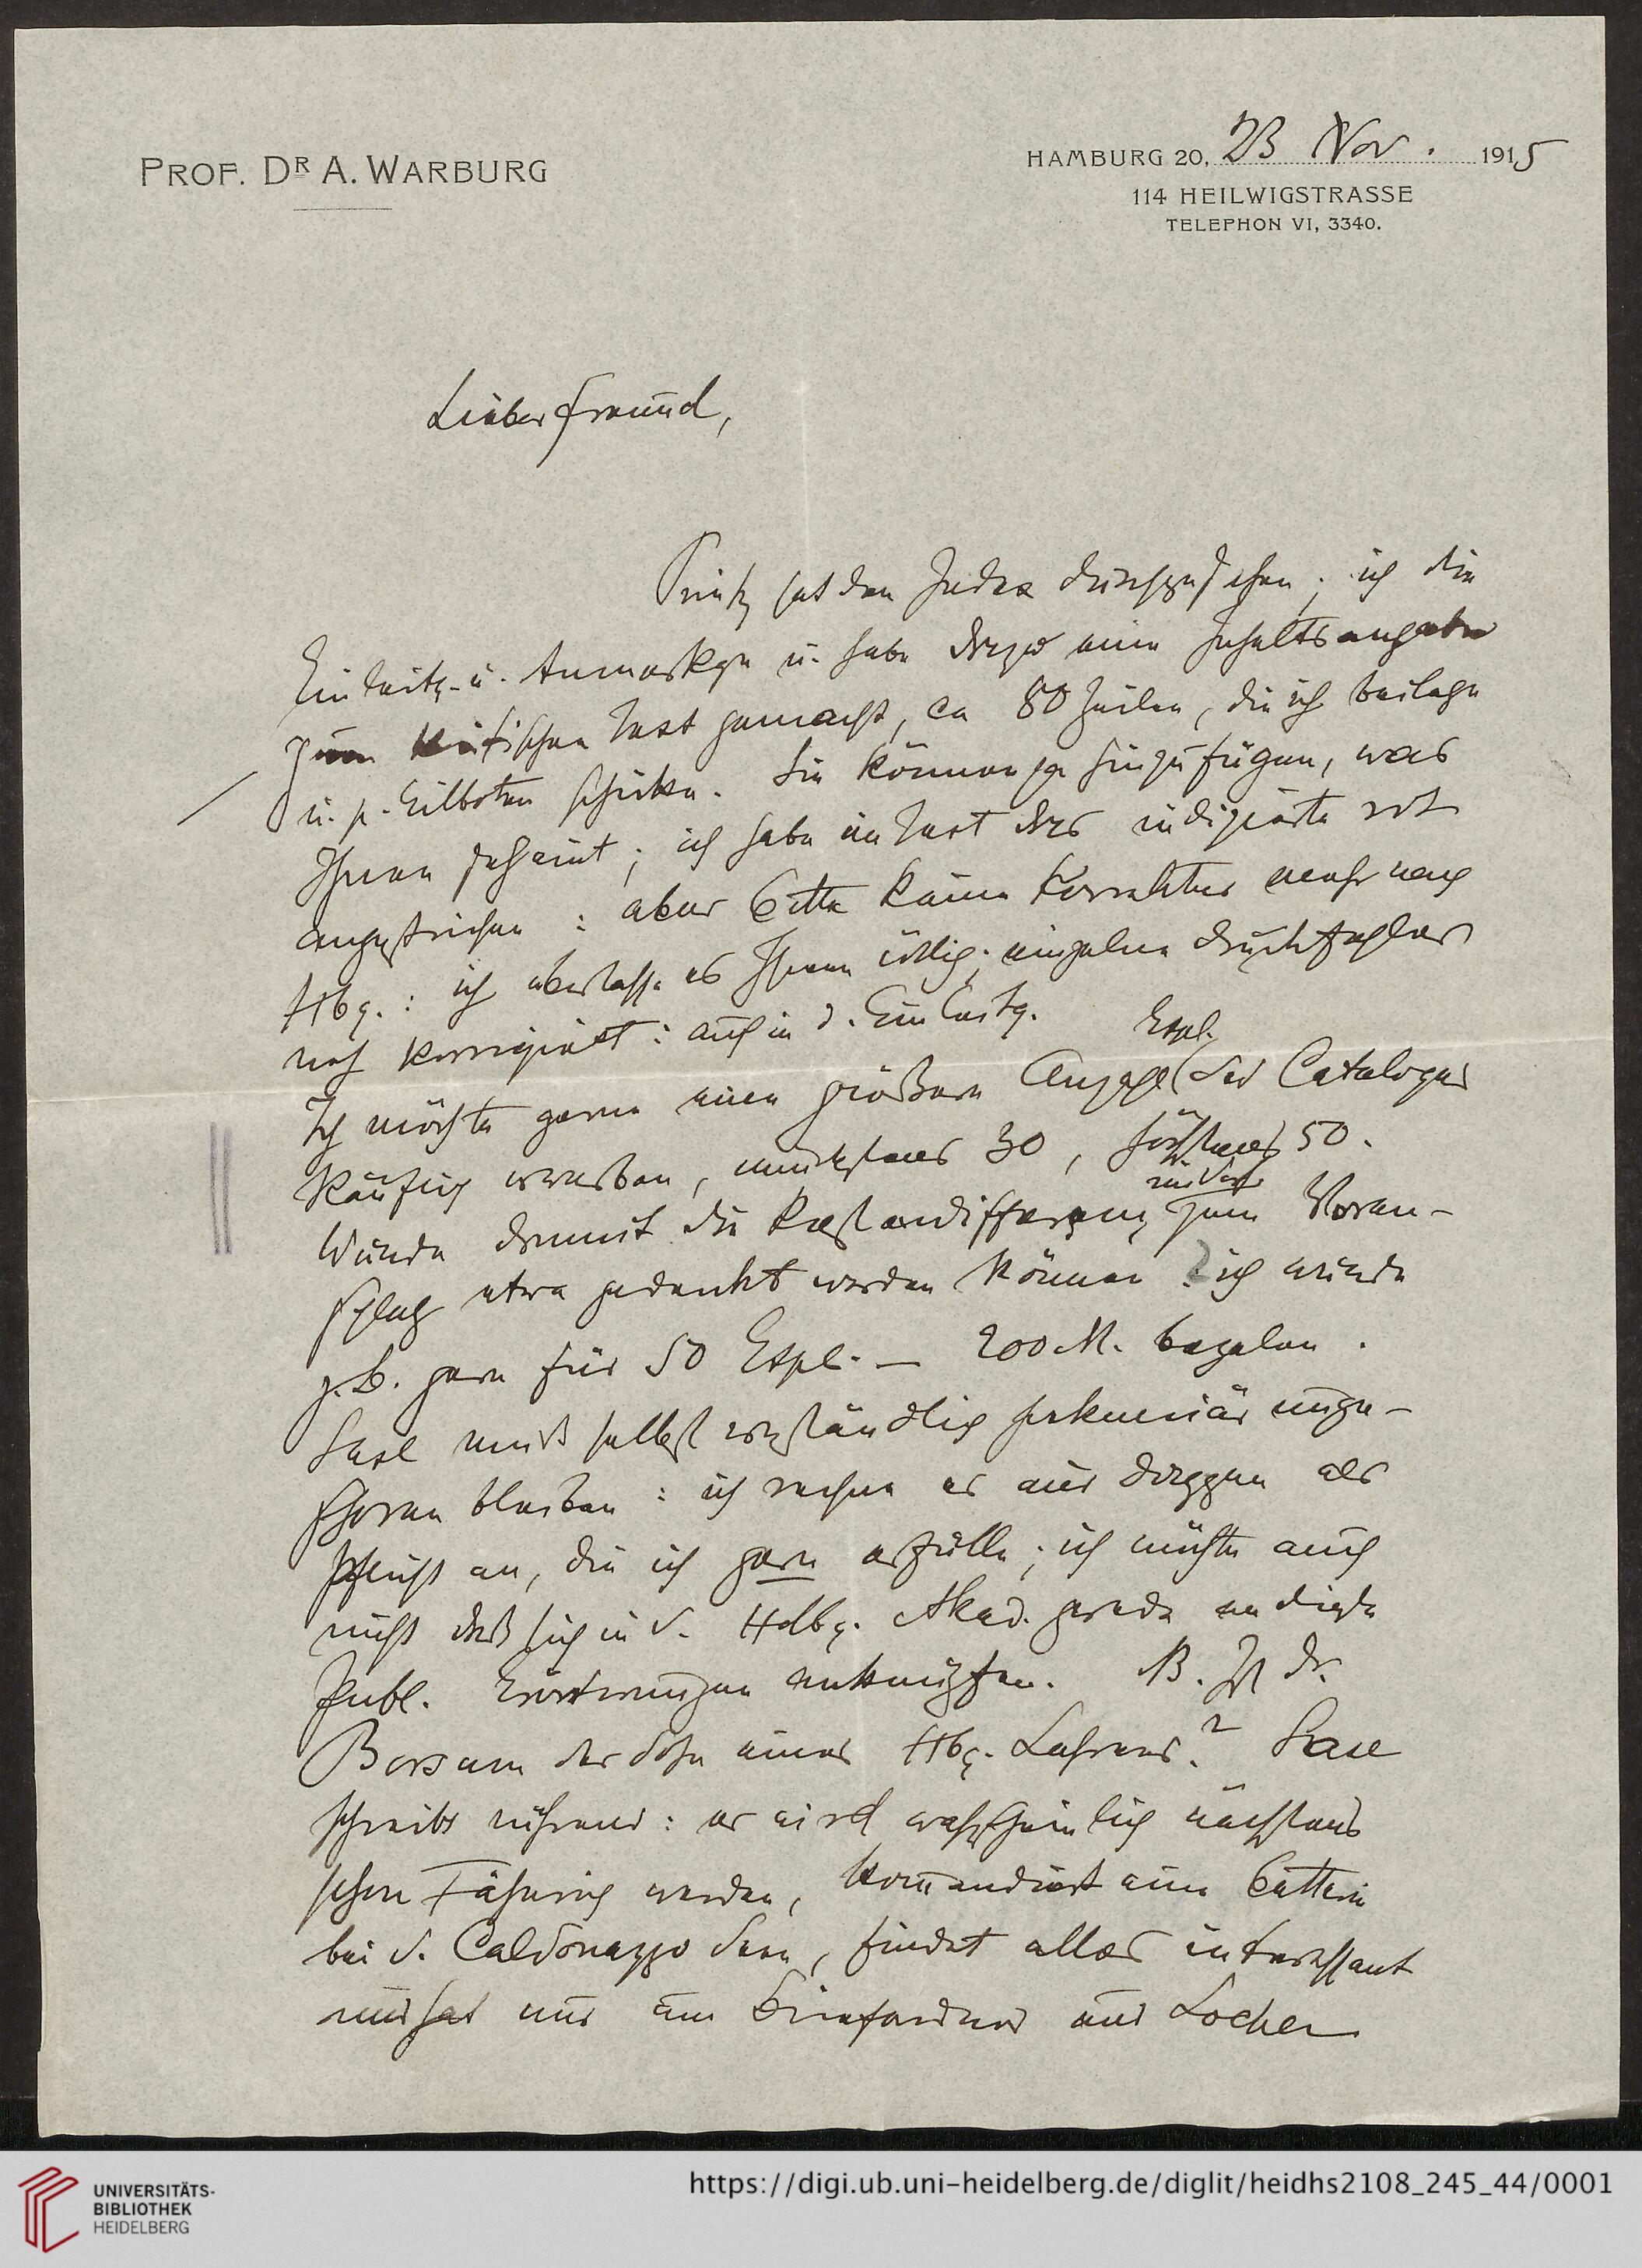 PROF. DR A. WARBURG
HAMBURG 20, 23 Nov. 1915
114 HEILWIGSTRASSE
TELEPHON VI, 3340.
Lieber Freund,
Printz hat den Index durchgesehen; ich die
Einleitg. u. Anmerkgn u. habe dazu eine Inhaltsangabe
zum kritischen Text gemacht, ca 80 Zeilen, die ich beilege
u. p. Eilboten schicke. Sie können ja hinzufügen, was
Ihnen scheint; ich habe im Text das indizierte rot
angestrichen: aber bitte keine Korrektur mehr nach
Hbg.: ich überlasse es Ihnen völlig; einzelne Druckfehler
noch korrigiert: auch in d. Einleitg.
Ich möchte gerne eine größere Anzahl Expl. des Cataloges
käuflich erwerben, mindestens 30, höchstens 50.
Würde damit die Kostendifferenz zum Voran-
schlag etwa gedeckt werden können? ich würde
z.B. gern für 50 Expl. – 200 M. bezahlen.
Saxl muß selbstverständlich pekuniär unge-
schoren bleiben: ich rechne es mir dagegen als
Pflicht an, die ich gern erfülle; ich möchte auch
nicht daß sich in d. Hdlbg. Akad. gerade an diese
Publ. Erörterungen anknüpfen. NB. Ist Dr.
der Sohn eines Hbg. Lehrers? Saxl
schreibt rührend: er wird wahrscheinlich nächstens
schon Fähnrich werden, kommandiert eine Batterie
bei d. Caldonazzo See, findet alles interessant
und hat nur um Briefordner und Locher
UNIVERSITÄTS-
BIBLIOTHEK
HEIDELBERG
https://digi.ub.uni-heidelberg.de/diglit/heidhs2108_245_44/0001